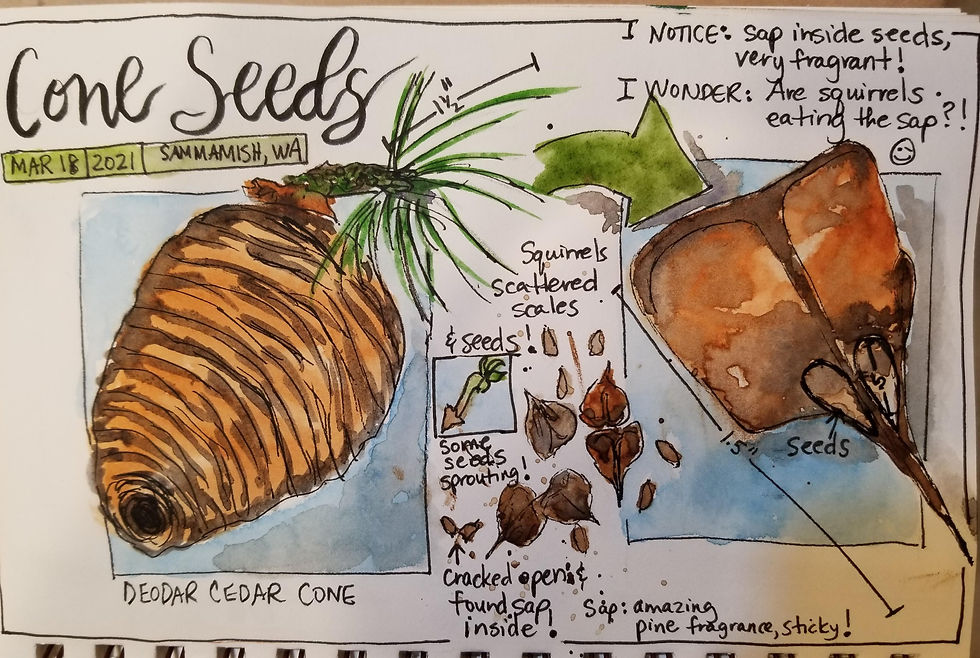 Cone Seeds
MAR 18 2021 SAMMAMISH, WA
1½"
I NOTICE: sap inside seeds,
very fragrant!
I WONDER: Are squirrels
eating the sap?!
Squirrels
scattered
scales
& seeds!
some
seeds
sprouting!
cracked open &
found sap
inside!
1.5"
seeds
Sap: amazing
pine fragrance, sticky!
DEODAR CEDAR CONE